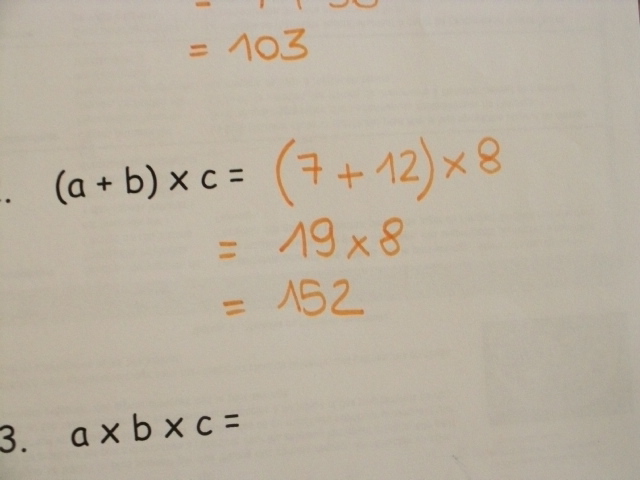 = 103
. (a + b) x c = (7 + 12) x 8
= 19 x 8
= 152
3. a x b x c =